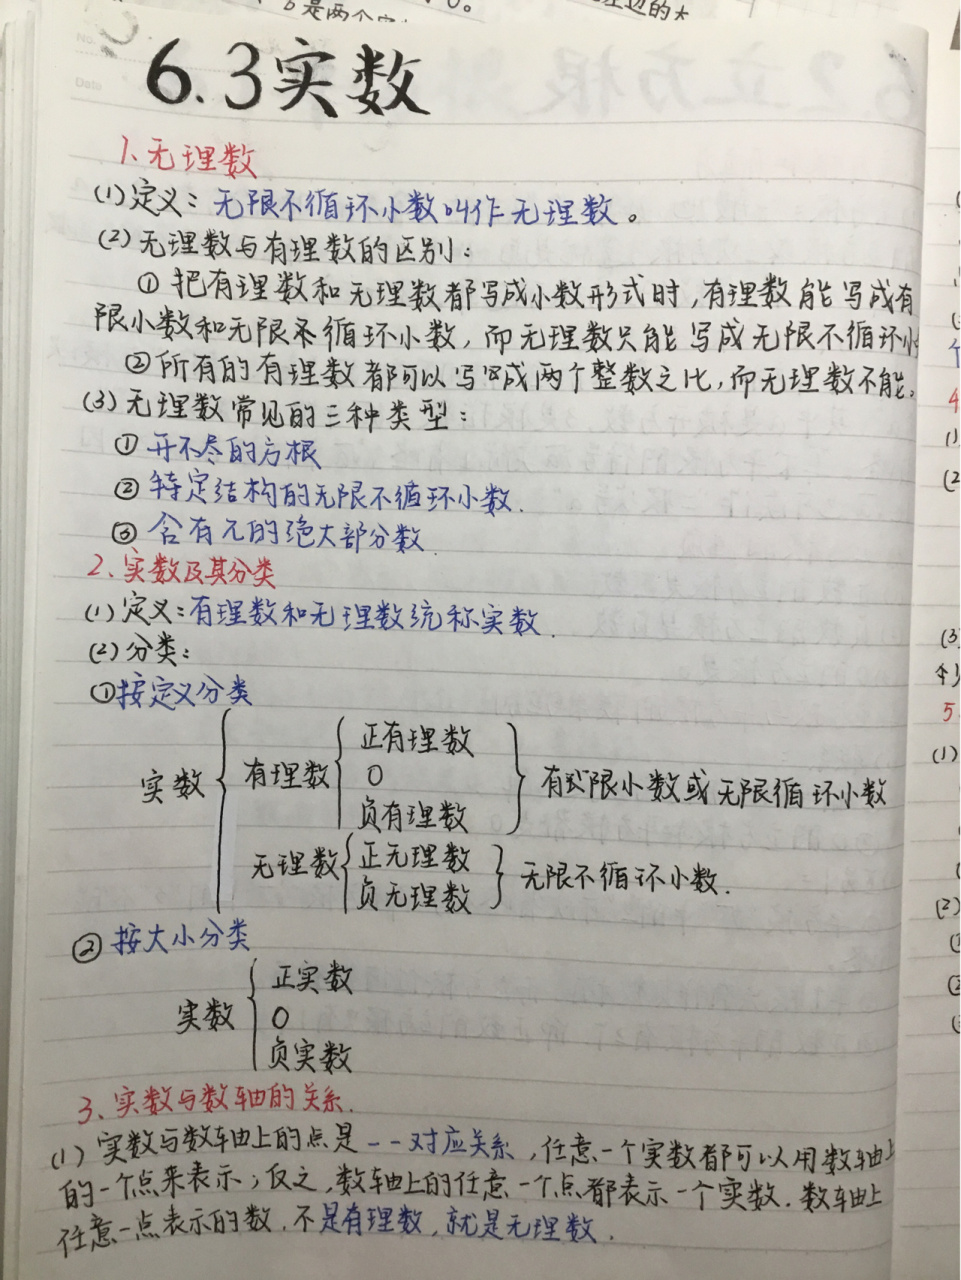 6.3实数
1.无理数
(1)定义:无限不循环小数叫作无理数。
(2)无理数与有理数的区别:
①把有理数和无理数都写成小数形式时,有理数能写成有
限小数和无限循环小数,而无理数只能写成无限不循环小
②所有的有理数都可以写成两个整数之比,而无理数不能.
(3)无理数常见的三种类型:
①开不尽的方根
②特定结构的无限不循环小数.
③含有π的绝大部分数.
2.实数及其分类
(1)定义:有理数和无理数统称实数.
(2)分类:
①按定义分类
正有理数
实数 有理数 0 有限小数或无限循环小数
负有理数
无理数 正无理数 无限不循环小数.
负无理数
②按大小分类
正实数
实数 0
负实数
3.实数与数轴的关系.
(1)实数与数轴上的点是一一对应关系,任意一个实数都可以用数轴上
的一个点来表示;反之,数轴上的任意一个点都表示一个实数.数轴上
任意一点表示的数.不是有理数,就是无理数.